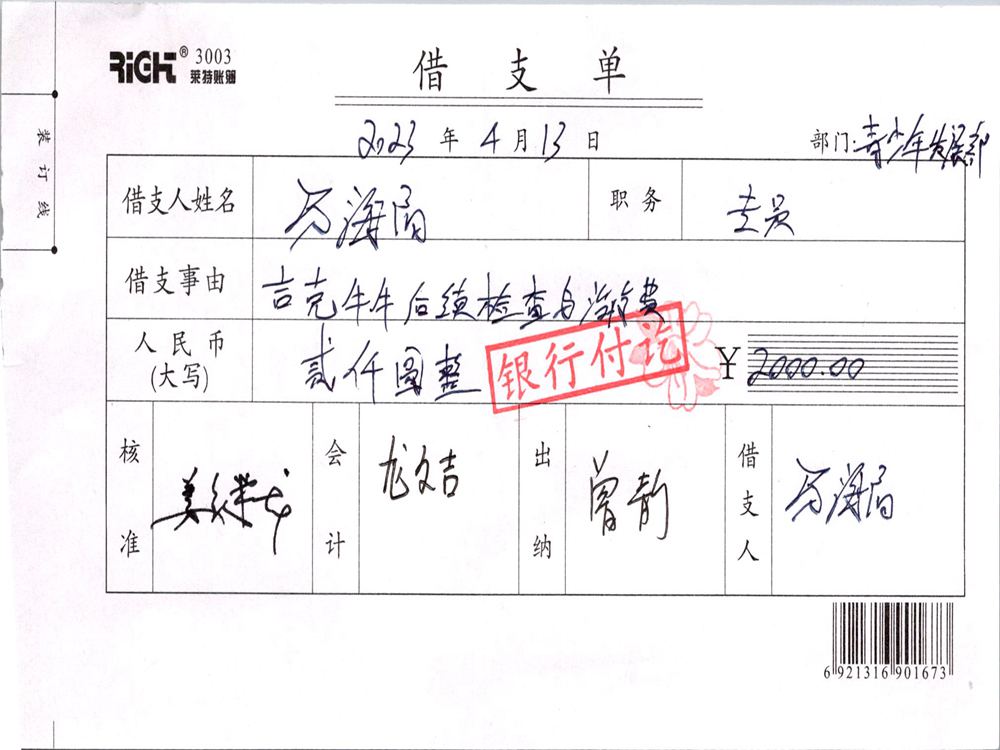 RiGHT® 3003
莱特账簿
借支单
2023年4月13日
部门:青少年发展部
装订线
借支人姓名 万海局 职务 专员
借支事由 吉克牛牛后续检查与治疗费
人民币(大写) 贰仟圆整 ¥2000.00
银行付讫
核准 会计 龙文吉 出纳 曾静 借支人 万海局
6 921316 901673